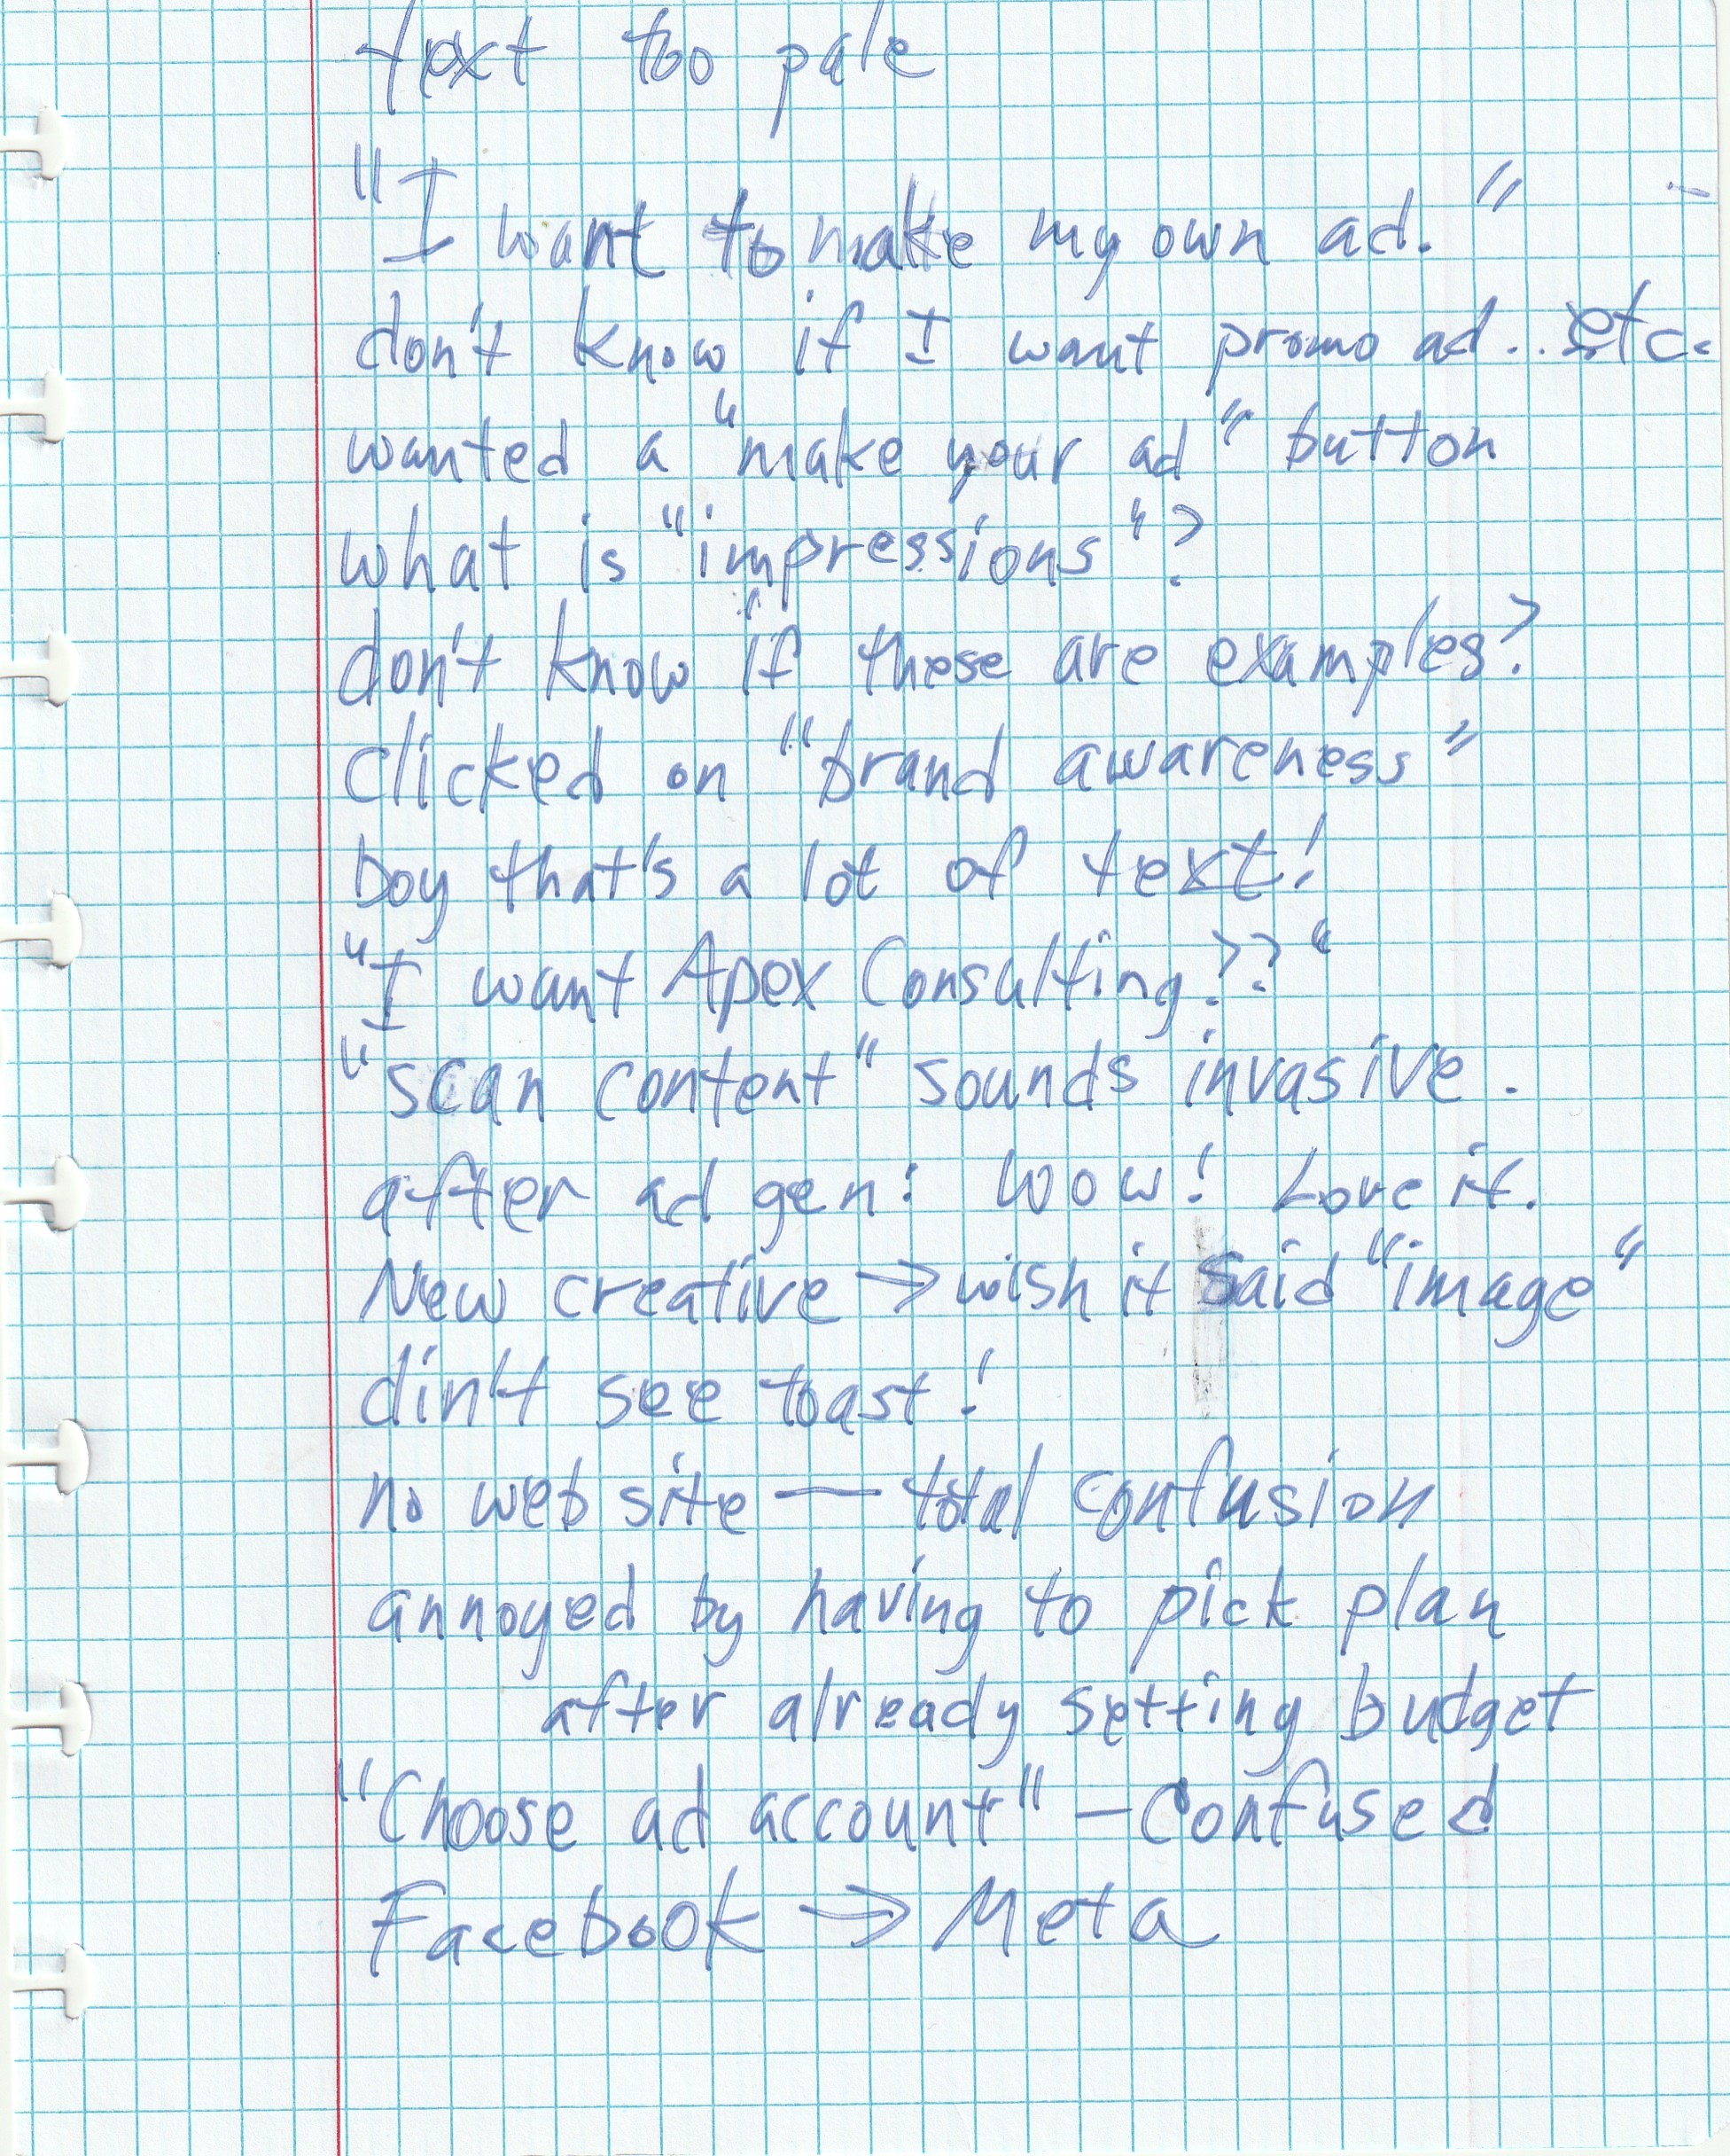 text too pale
"I want to make my own ad."
don't know if I want promo ad... etc.
wanted a "make your ad" button
what is "impressions"?
don't know if these are examples?
clicked on "brand awareness"
boy that's a lot of text!
"I want Apex Consulting??"
"scan content" sounds invasive.
after ad gen: WOW! Love it.
New creative → wish it said "image"
din't see toast!
no web site — total confusion
annoyed by having to pick plan
after already setting budget
"Choose ad account" – Confused
Facebook → Meta